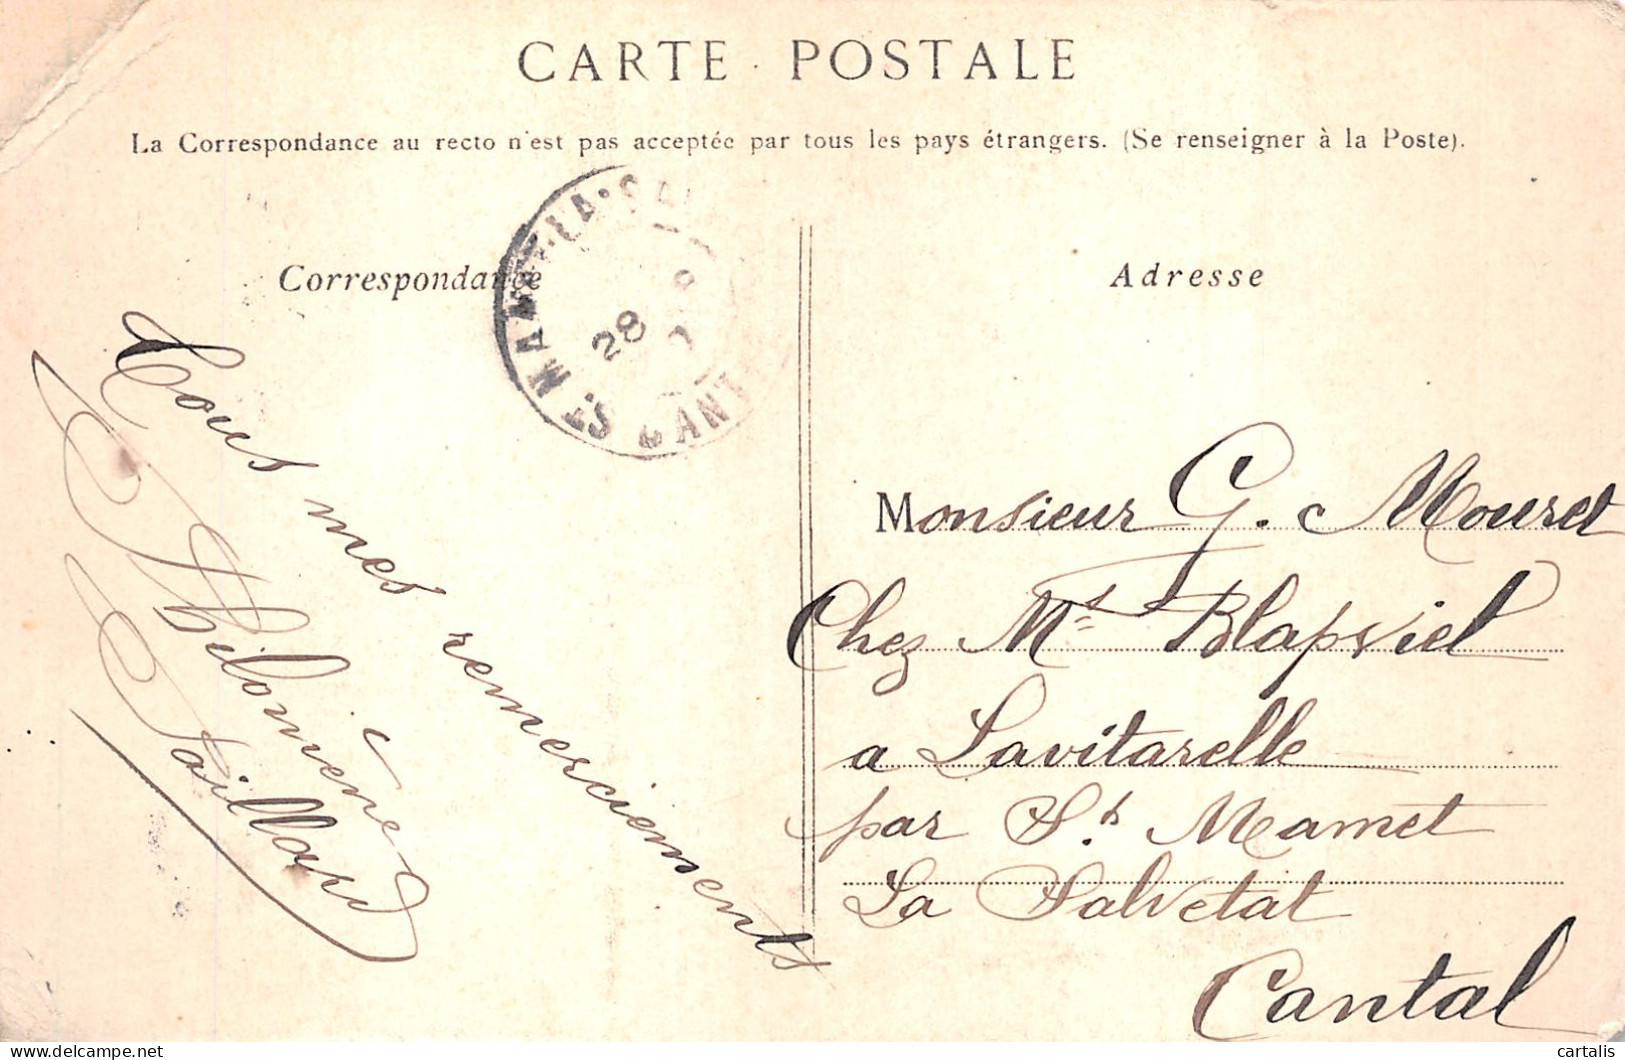 CARTE POSTALE
La Correspondance au recto n'est pas acceptée par tous les pays étrangers. (Se renseigner à la Poste).
Correspondance
Tous mes remerciements
Philomène
Paillard
ST MAMET-LA-SAL
28
CANT
Adresse
Monsieur G. Mouret
Chez Mr Blapviel
a Lavitarelle
par St Mamet
La Salvetat
Cantal
www.delcampe.net
cartalis